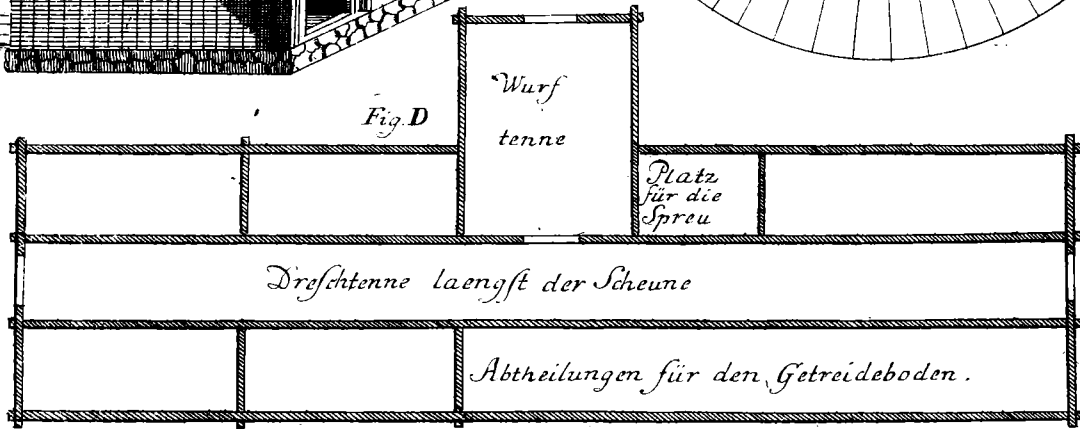 Wurf
tenne
Fig. D
Platz
für die
Spreu
Dreſchtenne laengſt der Scheune
Abtheilungen für den Getreideboden.